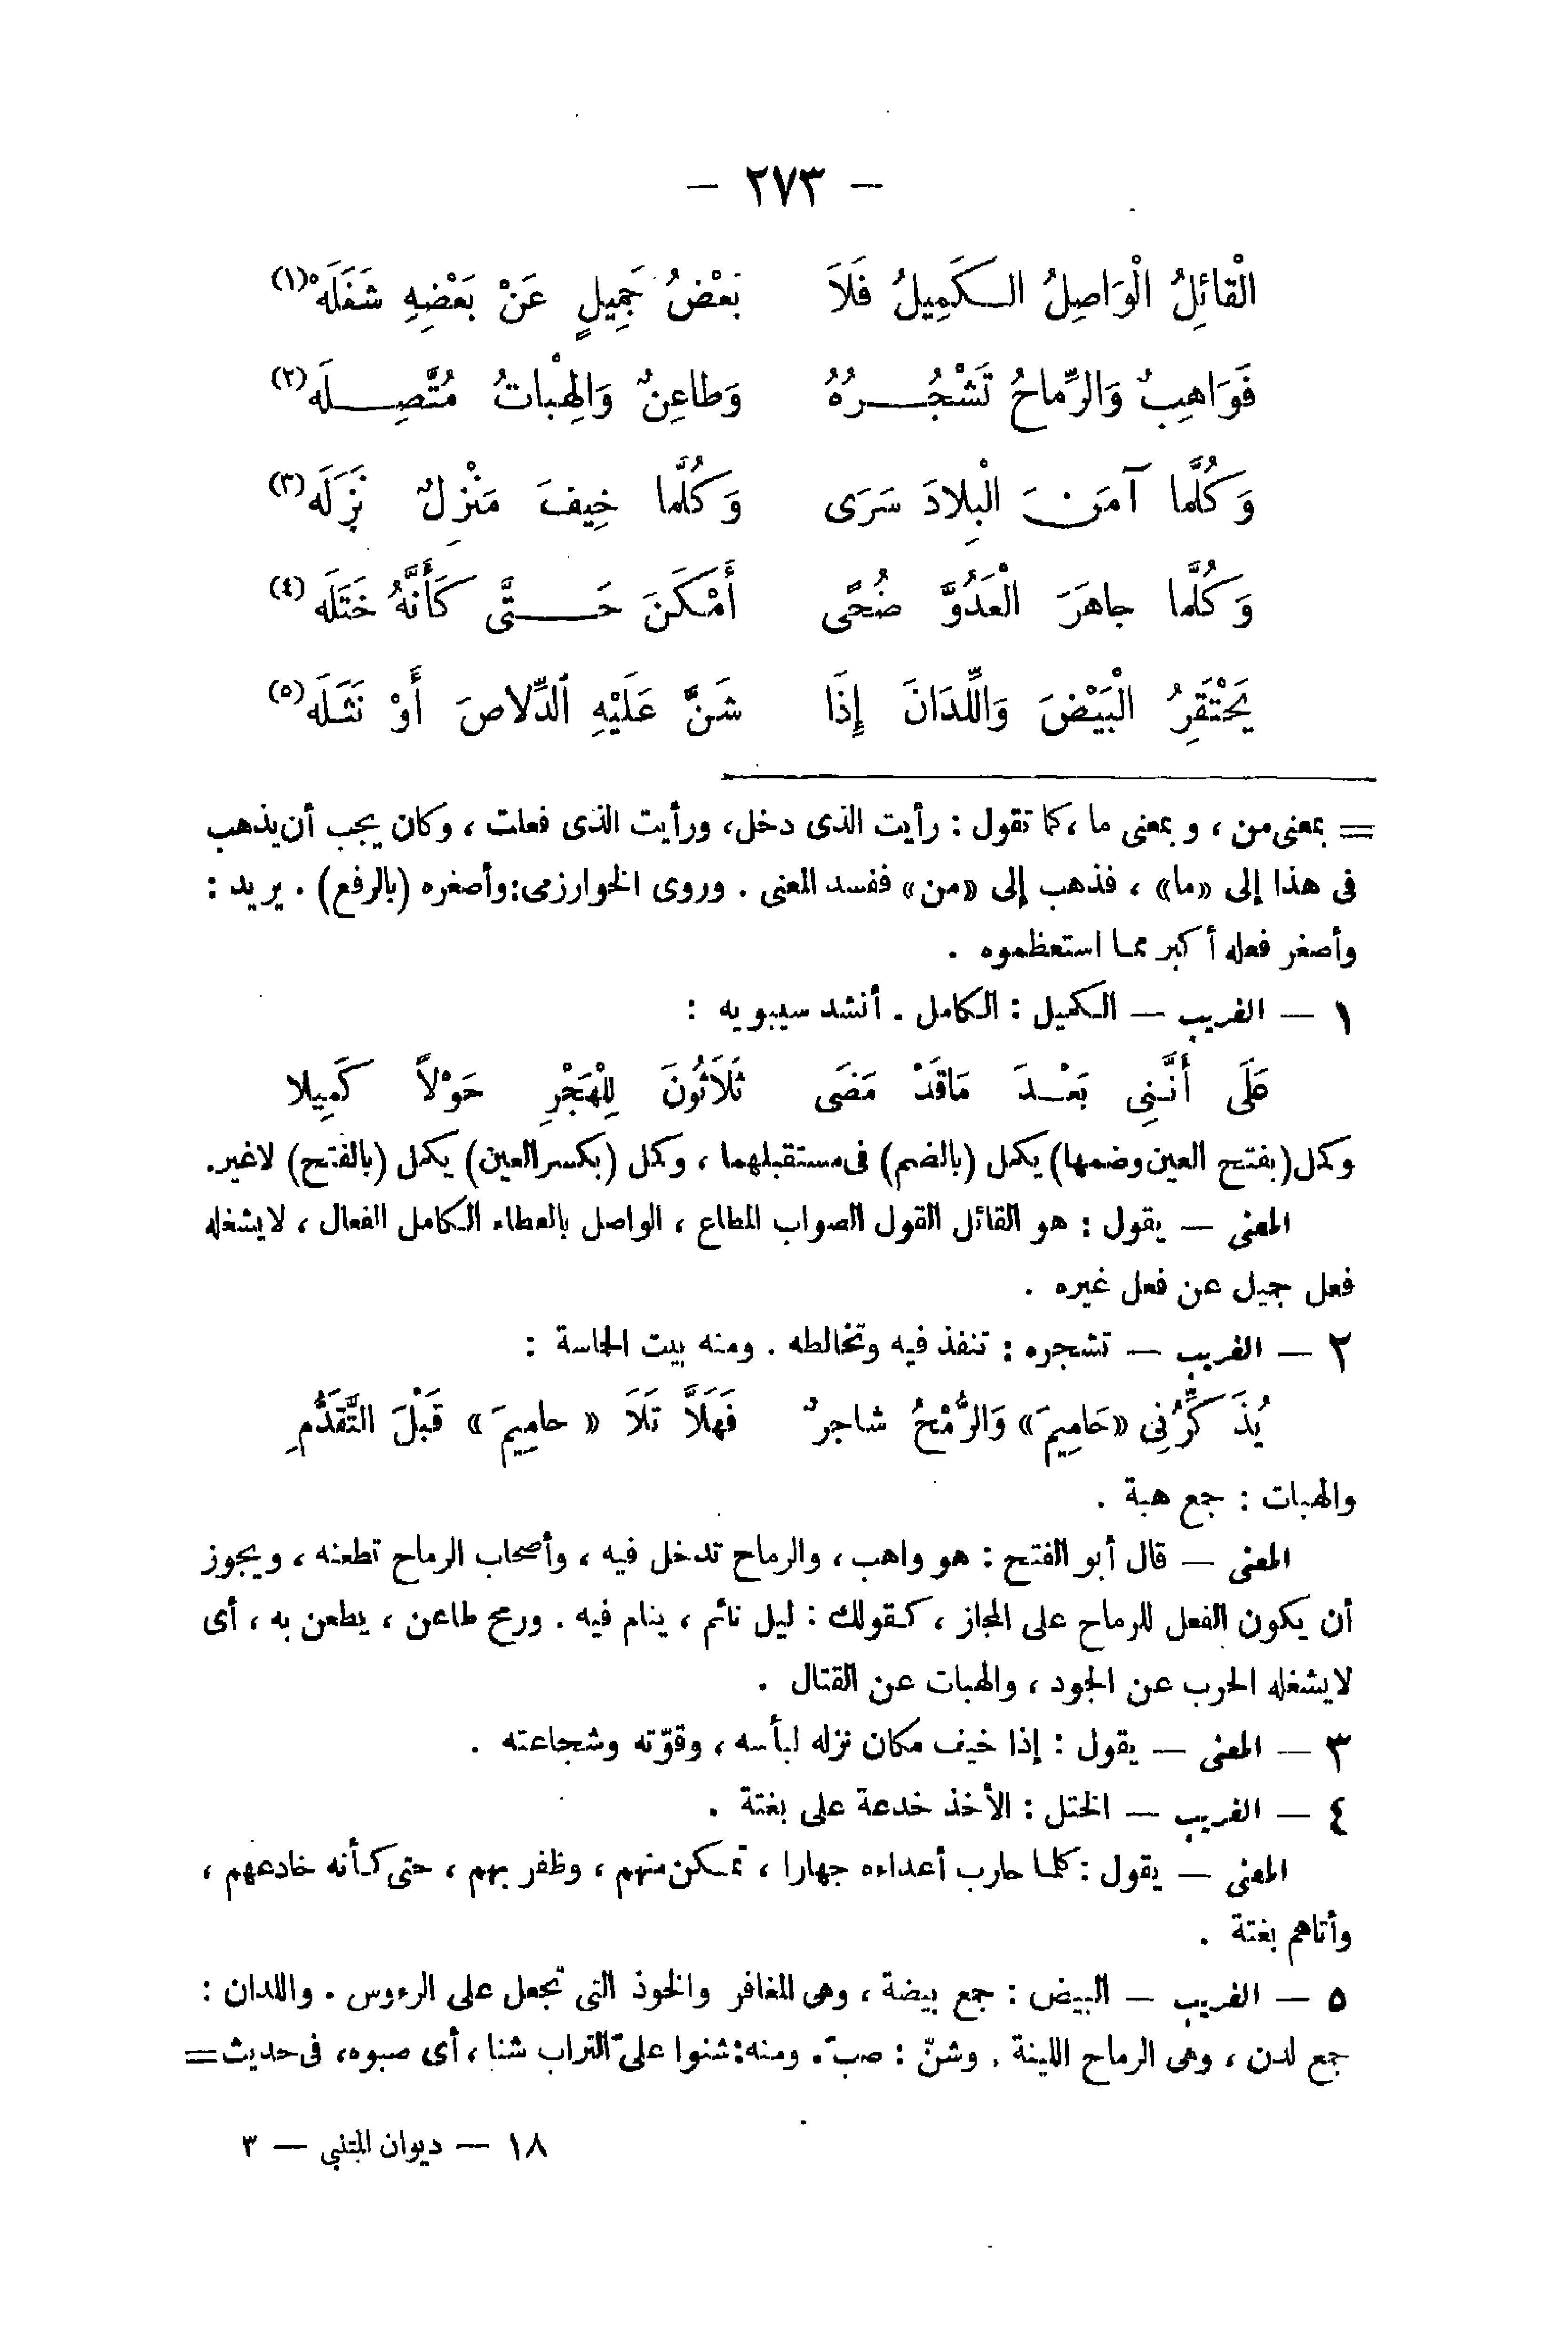 — ٢٧٣ —
الْقائِلُ الْوَاصِلُ الـكَمِيلُ فَلَا بَعْضُ جَمِيلٍ عَنْ بَعْضِهِ شَغَلَهْ (١)
فَوَاهِبٌ وَالرِّماحُ تَشْجُـــرُهُ وَطاعِنٌ وَالْهِباتُ مُتَّصِـــلَه (٢)
وَكُلَّما آمَنَ الْبِلادَ سَرَى وَكُلَّما خِيفَ مَنْزِلٌ نَزَلَه (٣)
وَكُلَّما جاهَرَ الْعَدُوَّ ضُحًى أَمْكَنَ حَـــتَّى كَأَنَّهُ خَتَلَه (٤)
يَحْتَقِرُ الْبَيْضَ وَاللِّدَانَ إِذَا شَنَّ عَلَيْهِ الدِّلاصَ أَوْ نَثَلَه (٥)
= بمعنى من ، و بمعنى ما ، كما تقول : رأيت الذى دخل ، ورأيت الذى فعلت ، وكان يجب أن يذهب
فى هذا إلى «ما» ، فذهب إلى «من» ففسد المعنى . وروى الخوارزمى : وأصغره (بالرفع) . يريد :
وأصغر فعله أكبر مما استعظموه .
١ — الغريب — الـكميل : الـكامل . أنشد سيبويه :
عَلَى أَنَّنِى بَعْــدَ مَاقَدْ مَضَى ثَلَاثُونَ لِلْهَجْرِ حَوْلاً كَمِيلا
وكمل (بفتح العين وضمها) يكمل (بالضم) فى مستقبلهما ، وكمل (بكسر العين) يكمل (بالفتح) لاغير.
المعنى — يقول : هو القائل القول الصواب المطاع ، الواصل بالعطاء الـكامل الفعال ، لايشغله
فعل جميل عن فعل غيره .
٢ — الغريب — تشجره : تنفذ فيه وتخالطه . ومنه بيت الحماسة :
يُذَكِّرُنِى «حَامِيمَ» وَالرُّمْحُ شاجرٌ فَهَلاَّ تَلَا « حامِيمَ » قَبْلَ التَّقَدُّمِ
والهبات : جمع هبة .
المعنى — قال أبو الفتح : هو واهب ، والرماح تدخل فيه ، وأصحاب الرماح تطعنه ، ويجوز
أن يكون الفعل للرماح على المجاز ، كـقولك : ليل نائم ، ينام فيه . ورمح طاعن ، يطعن به ، أى
لايشغله الحرب عن الجود ، والهبات عن القتال .
٣ — المعنى — يقول : إذا خيف مكان نزله لبأسه ، وقوّته وشجاعته .
٤ — الغريب — الختل : الأخذ خدعة على بغتة .
المعنى — يقول : كلما حارب أعداءه جهارا ، تمـكن منهم ، وظفر بهم ، حتى كـأنه خادعهم ،
وأتاهم بغتة .
٥ — الغريب — البيض : جمع بيضة ، وهى المغافر والخوذ التى تجعل على الرءوس . واللدان :
جمع لدن ، وهى الرماح اللينة . وشنّ : صبّ . ومنه : شنوا علىّ التراب شنا ، أى صبوه ، فى حديث =
١٨ — ديوان المتنبي — ٣